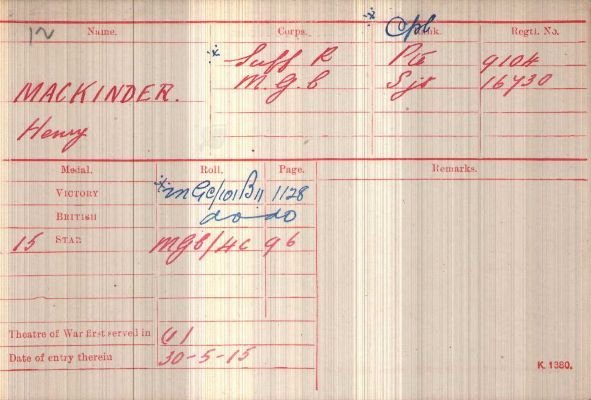 12 Name. Corps. * Cpl Rank. Regtl. No.
* Suff R Pte 9104
MACKINDER. M.G.C Sjt 16730
Henry
Medal. Roll. Page. Remarks.
VICTORY * MGC/101B11 1128
BRITISH do do
15 STAR MGC/4C 96
Theatre of War first served in (1)
Date of entry therein 30-5-15
K. 1380.